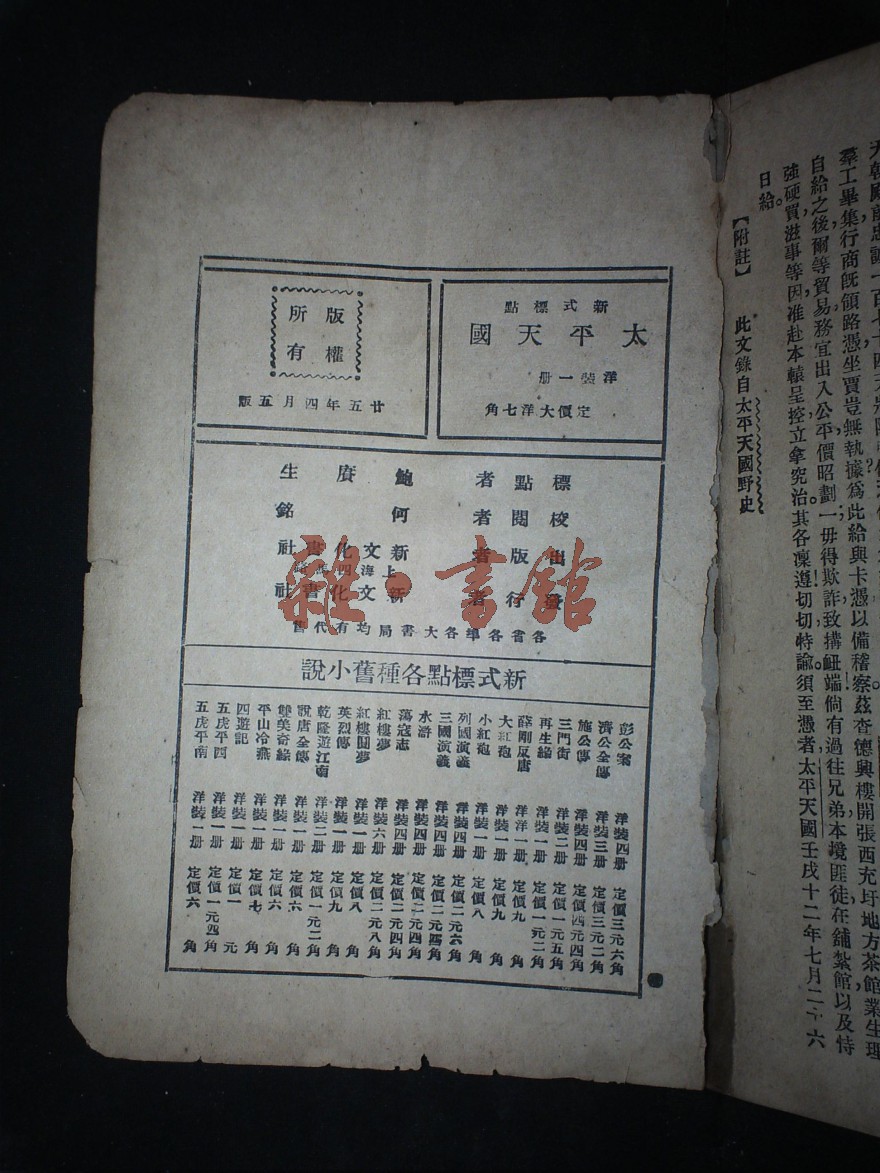 羣工畢集,行商既領路憑,坐賈豈無執據?爲此給與卡憑,以備稽察.茲查德興樓開張西充圩地方,茶館業生理
自給之後,爾等貿易,務宜出入公平,價昭劃一,毋得欺詐,致搆衅端!倘有過往兄弟,本境匪徒,在舖紮館以及恃
強硬買,滋事等因,准赴本轅呈控,立拿究治.其各凜遵!切切特諭.須至憑者太平天國壬戌十二年七月二十六
日給。
【附註】 此文錄自太平天國野史
新式標點
太平天國
洋裝一册
定價大洋七角
版權
所有
廿五年四月五版
標點者 鮑賡生
校閱者 何銘
出版者 新文化書社
上海四馬路
發行者 新文化書社
各省各埠各大書局均有代售
新式標點各種舊小說
彭公案 洋裝四册 定價三元六角
濟公全傳 洋裝三册 定價三元二角
施公傳 洋裝四册 定價四元四角
三門街 洋裝二册 定價一元五角
再生緣 洋裝一册 定價一元二角
薛剛反唐 洋洋一册 定價九角
大紅袍 洋裝一册 定價九角
小紅袍 洋裝一册 定價八角
列國演義 洋裝四册 定價二元六角
三國演義 洋裝四册 定價二元四角
水滸 洋裝四册 定價二元四角
蕩寇志 洋裝四册 定價二元四角
紅樓夢 洋裝六册 定價二元八角
紅樓圓夢 洋裝一册 定價八角
英烈傳 洋裝一册 定價九角
乾隆遊江南 洋裝二册 定價一元二角
說唐全傳 洋裝一册 定價六角
雙美奇緣 洋裝一册 定價六角
平山冷燕 洋裝一册 定價七角
四遊記 洋裝一册 定價一元
五虎平西 洋裝一册 定價一元四角
五虎平南 洋裝一册 定價六角
雜·書館